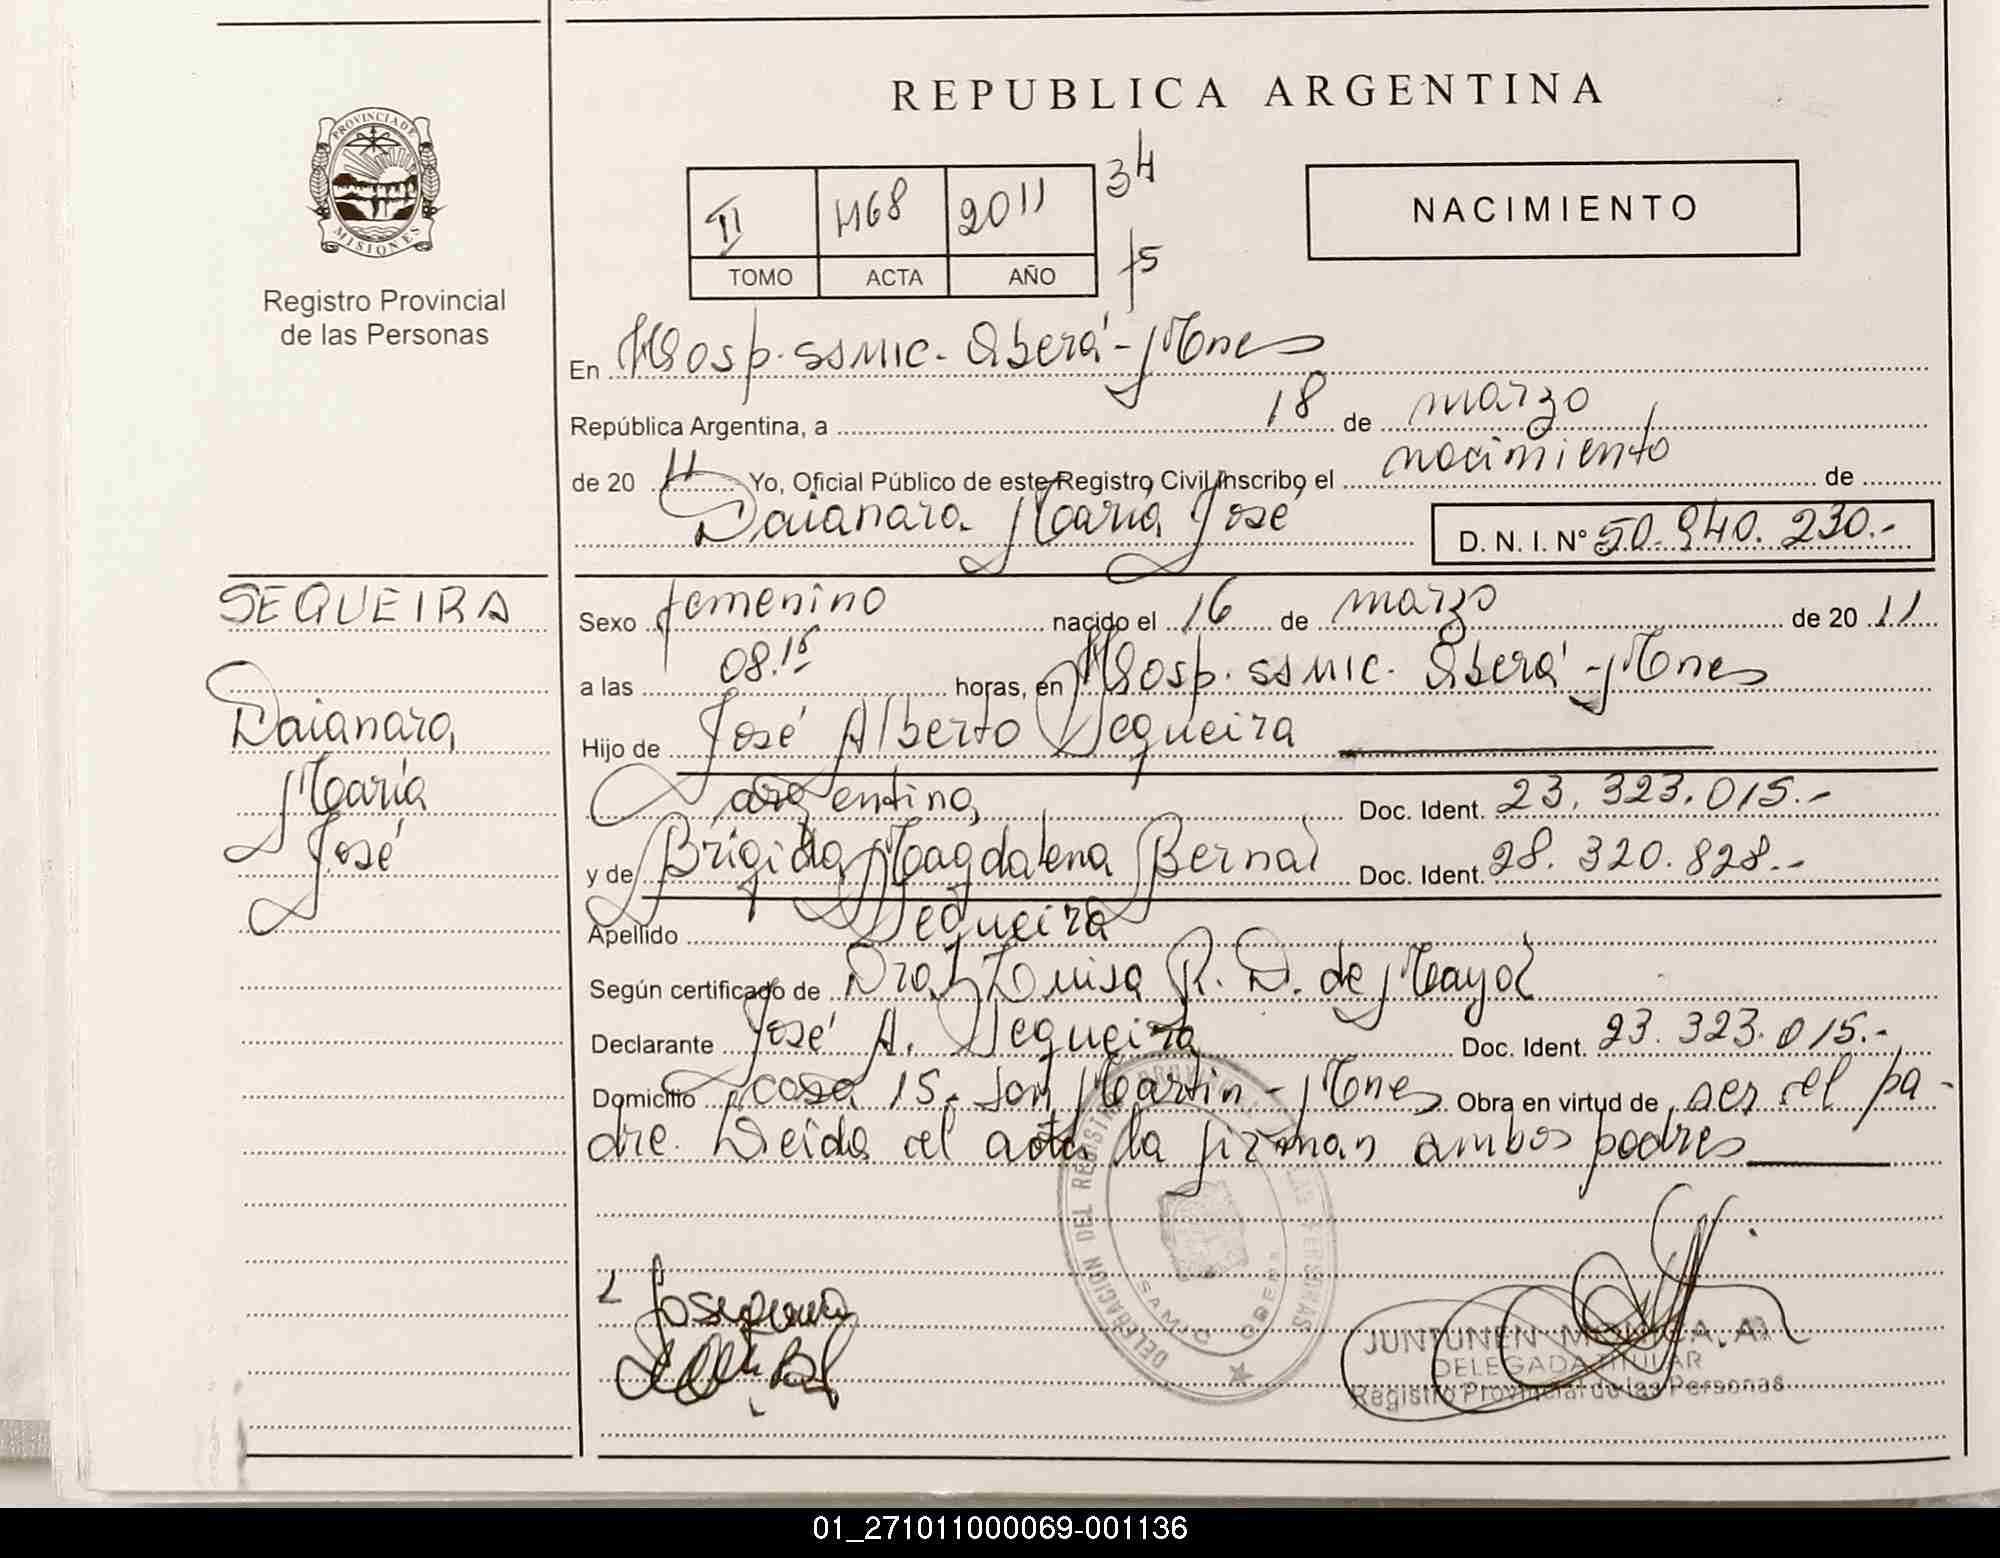 REPUBLICA ARGENTINA
PROVINCIA DE
MISIONES
Registro Provincial
de las Personas
II 1168 2011 34
TOMO ACTA AÑO 75
NACIMIENTO
En Hosp. SSMIC. Oberá - Mnes
República Argentina, a 18 de marzo
de 20 11 Yo, Oficial Público de este Registro Civil Inscribo el nacimiento de
Daianara María José D. N. I. N° 50.940.230.-
SEQUEIRA
Daianara
María
José
Sexo femenino nacido el 16 de marzo de 20 11
a las 08.15 horas, en Hosp. SSMIC. Oberá - Mnes
Hijo de José Alberto Sequeira
argentino Doc. Ident. 23.323.015.-
y de Brigida Magdalena Bernal Doc. Ident. 28.320.828.-
Apellido Sequeira
Según certificado de Dra. Luisa R. D. de Mayol
Declarante José A. Sequeira Doc. Ident. 23.323.015.-
Domicilio casa 15. San Martin - Mnes Obra en virtud de ser el pa-
dre. Leida el acta la firman ambos padres
DELEGACION DEL REGISTRO PROVINCIAL DE LAS PERSONAS
SAMIC OBERA
JUNTUNEN MONICA. A.
DELEGADA TITULAR
Registro Provincial de las Personas
01_271011000069-001136